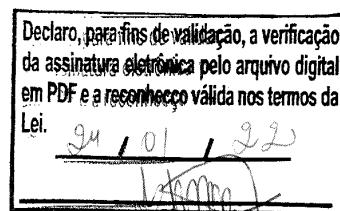 Declaro, para fins de validação, a verificação
da assinatura eletrônica pelo arquivo digital
em PDF e a reconheço válida nos termos da
Lei.
24 / 01 / 22